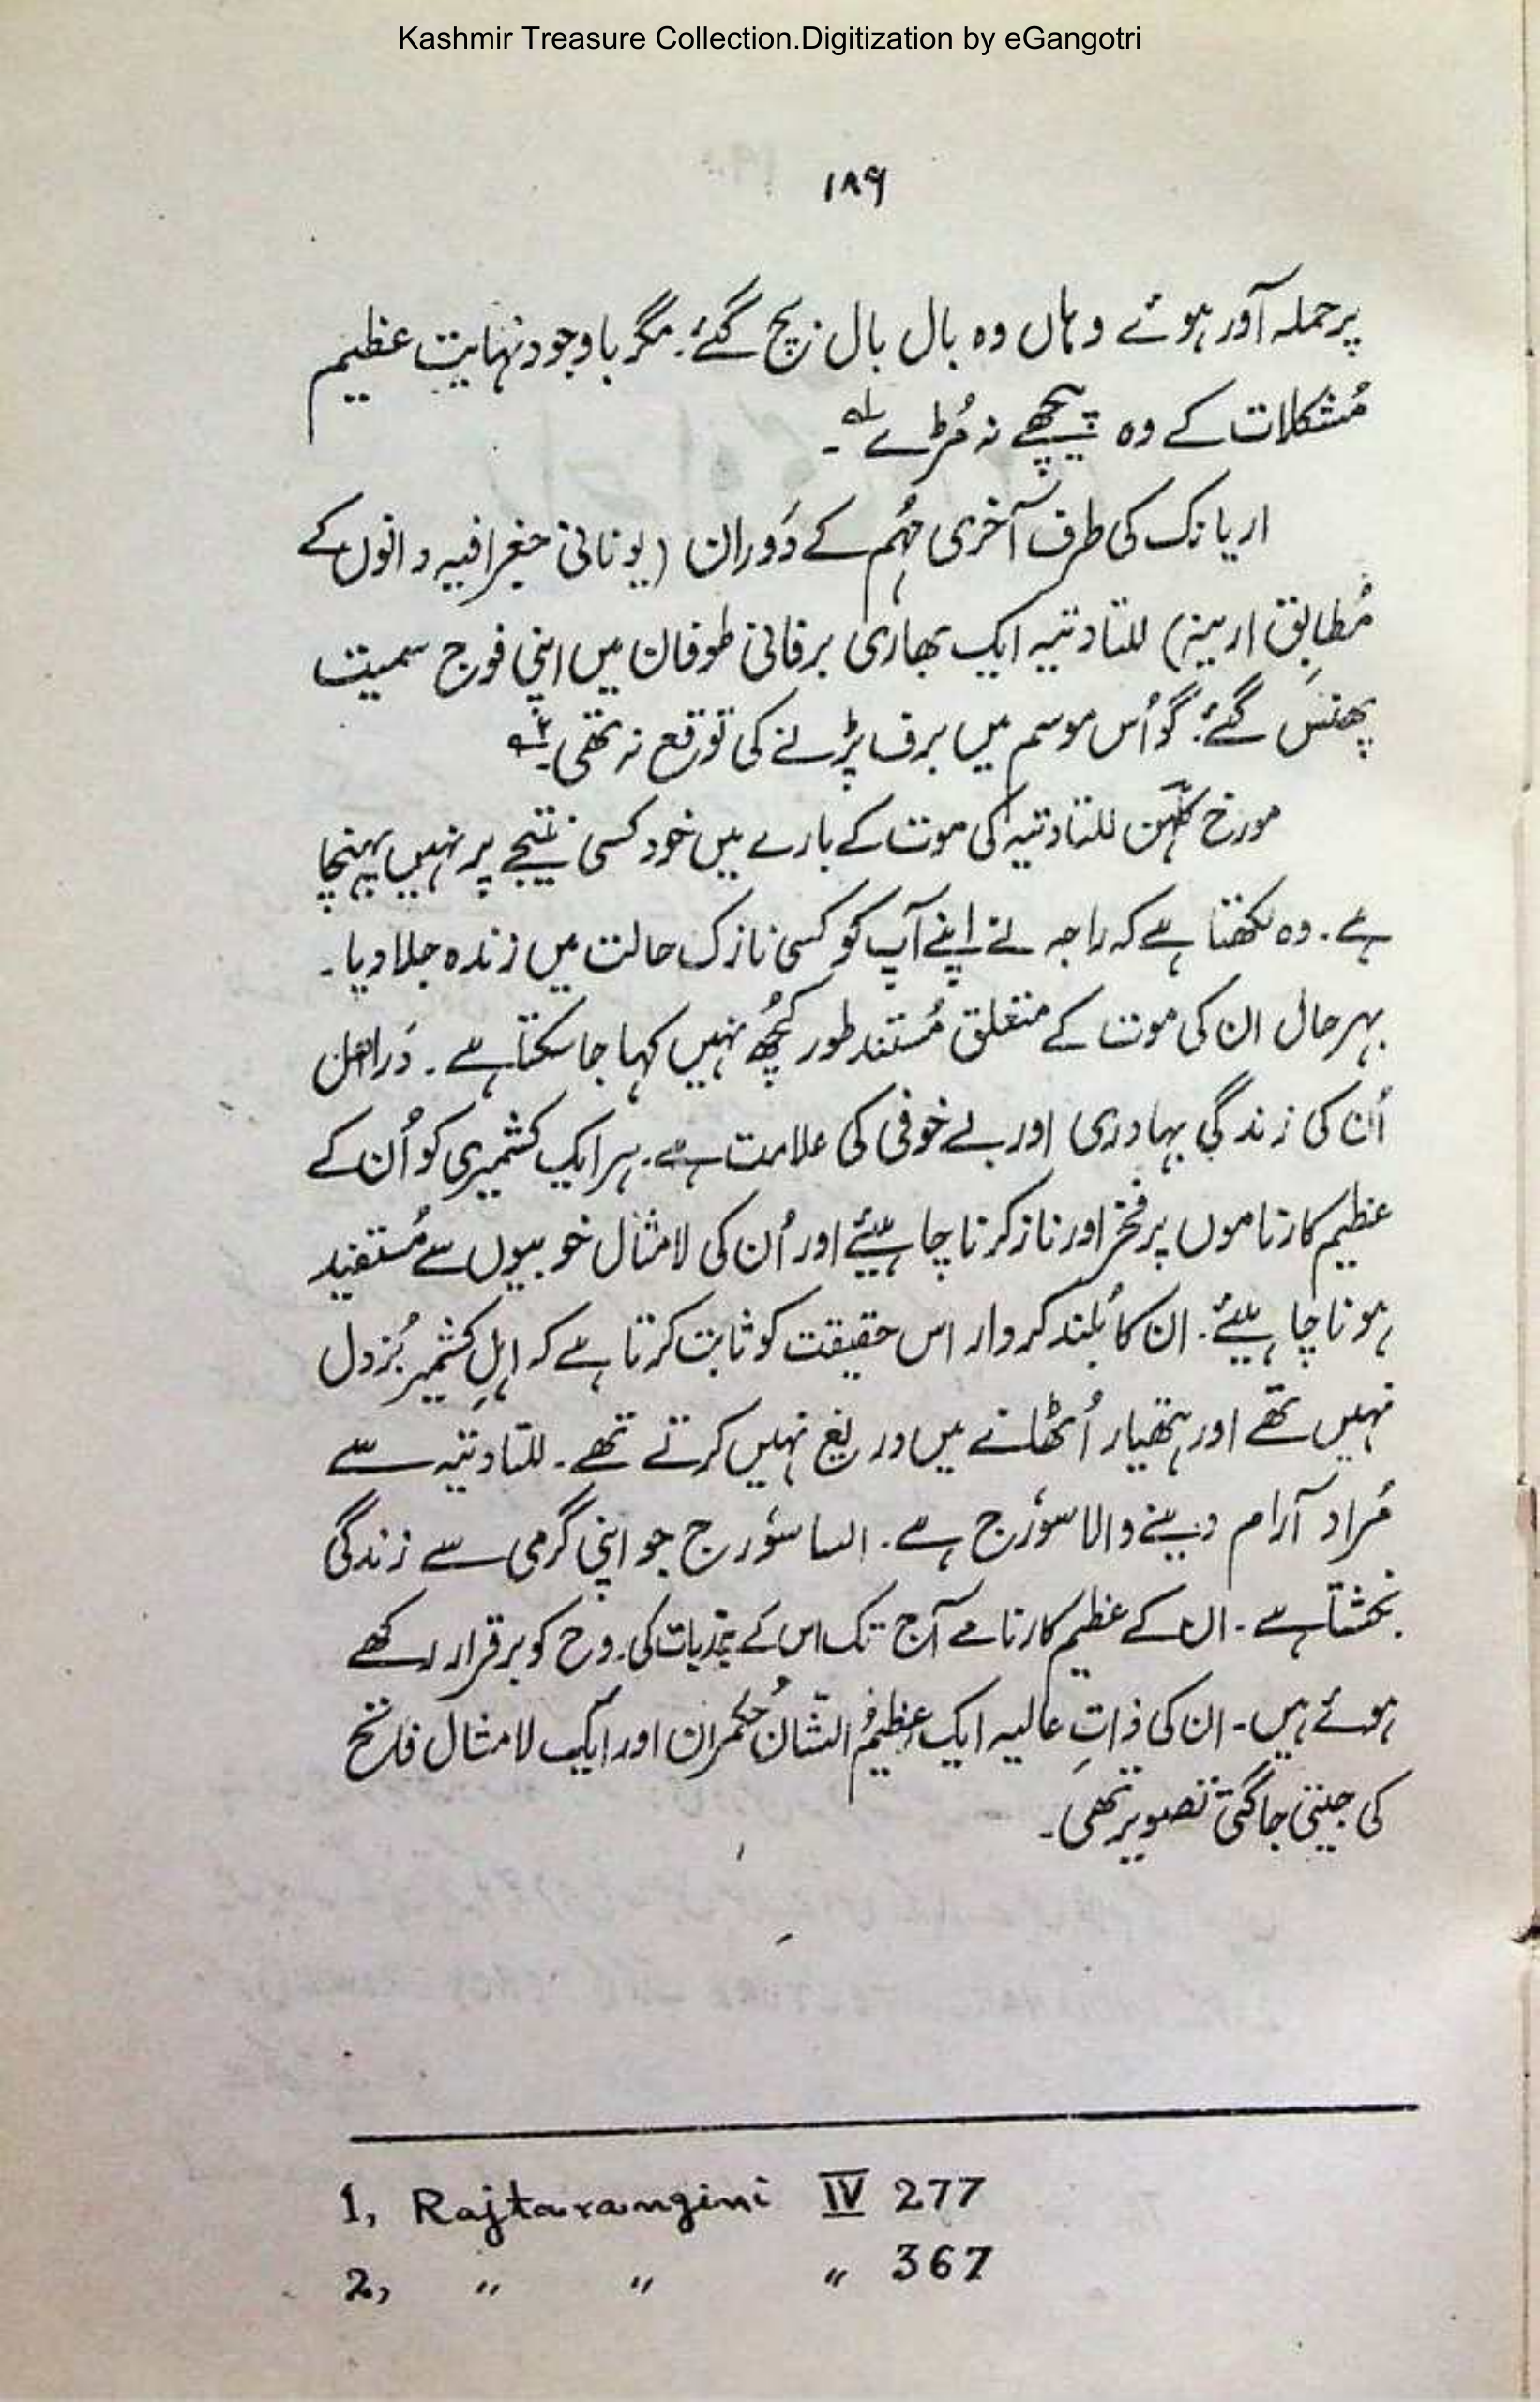 Kashmir Treasure Collection.Digitization by eGangotri
۱۸۹
پر حملہ آور ہوئے وہاں وہ بال بال بچ گئے۔ مگر باوجود نہایت عظیم
مُشکلات کے وہ پیچھے نہ مُڑے ۱؎۔
اریانک کی طرف آخری مُہم کے دَوران (یونانی جغرافیہ دانوں کے
مُطابِق ارینہ) للتادتیہ ایک بھاری برفانی طوفان میں اپنی فوج سمیت
پھنس گئے۔ گو اُس موسم میں برف پڑنے کی توقع نہ تھی۔ ۲؎
مورخ کلہن للتادتیہ کی موت کے بارے میں خود کسی نتیجے پر نہیں پہنچا
ہے۔ وہ لکھتا ہے کہ راجہ نے اپنے آپ کو کسی نازک حالت میں زندہ جلا دیا۔
بہر حال ان کی موت کے متعلق مُستند طور کچُھ نہیں کہا جا سکتا ہے۔ دَراصل
اُن کی زندگی بہادری اور بے خوفی کی علامت ہے۔ ہر ایک کشمیری کو اُن کے
عظیم کارناموں پر فخر اور ناز کرنا چاہیئے اور اُن کی لامثال خوبیوں سے مُستفید
ہونا چاہیئے۔ ان کا بُلند کردار اس حقیقت کو ثابت کرتا ہے کہ اہلِ کشمیر بُزدل
نہیں تھے اور ہتھیار اُٹھانے میں دریغ نہیں کرتے تھے۔ للتادتیہ سے
مُراد آرام دینے والا سوُرج ہے۔ ایسا سوُرج جو اپنی گرمی سے زندگی
بخشتا ہے۔ ان کے عظیم کارنامے آج تک اس کے کی روح کو برقرار رکھے
ہوئے ہیں۔ ان کی ذاتِ عالیہ ایک عظیمُ الشّان حُکمران اور ایک لامثال فاتح
کی جیتی جاگتی تصویر تھی۔
1, Rajtarangini IV 277
2, " " " 367